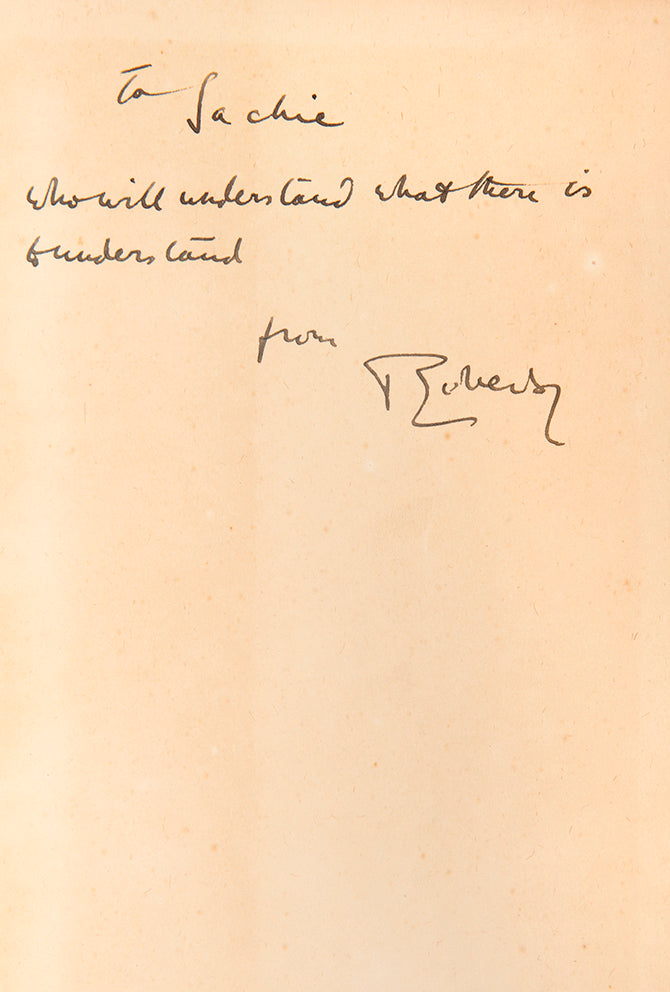 To
Sachie
who will understand what there is
to understand
from